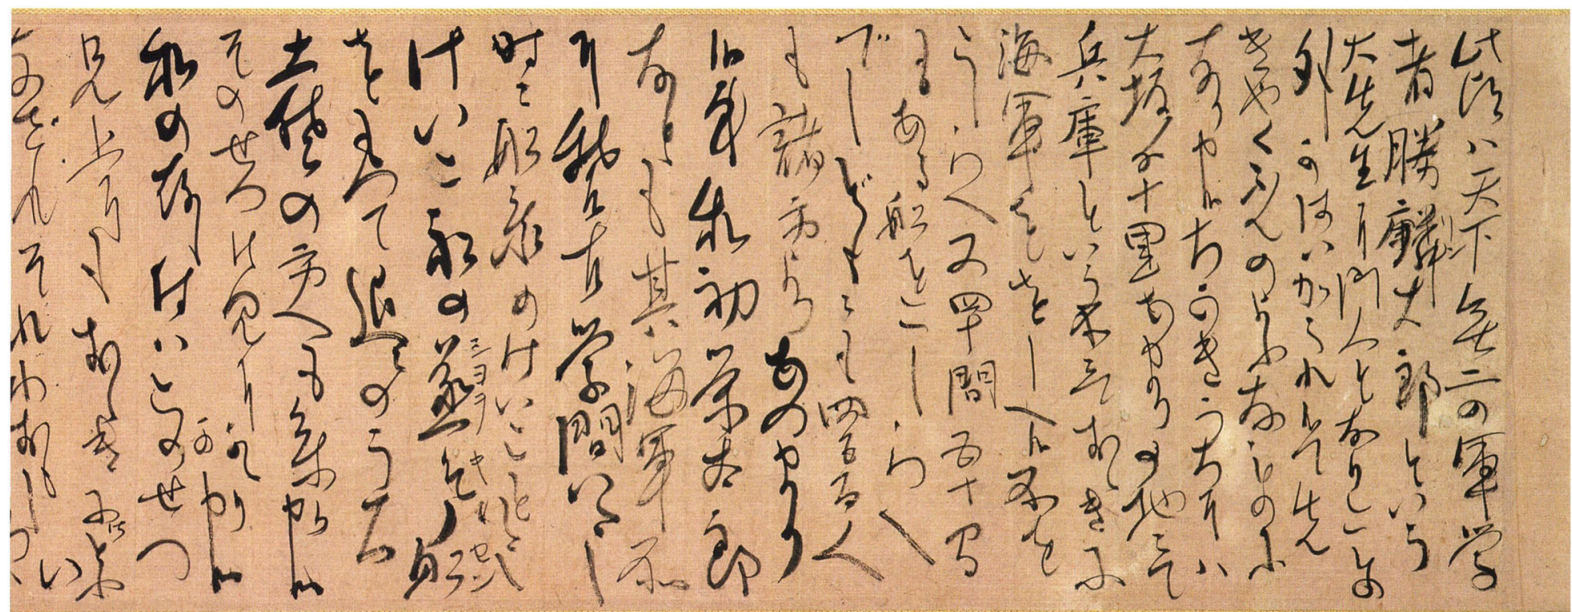 此頃ハ天下無二の軍学
者勝麟太郎という
大先生に門人となり、ことの
外かはいがられ候て、先
きやくぶんのよふなものに
なり申候。ちかきうちにハ
大坂より十里あまりの地ニて
兵庫という所ニて、おゝきに
海軍ををしへ候所を
こしらへ、又四十間五十間
もある船をこしらへ
でしどもニも四五百人
も諸方よりあつまり
候事、私初栄太郎
なども其海軍所
に稽古学問いたし
時々船乗のけいこもいたし
けいこ船の蒸気船
をもって近々のうち
土佐の方へも参り申候
そのせつ御見にかゝり可申候
私の存じ付ハこのせつ
兄上にもおゝきに御どふ